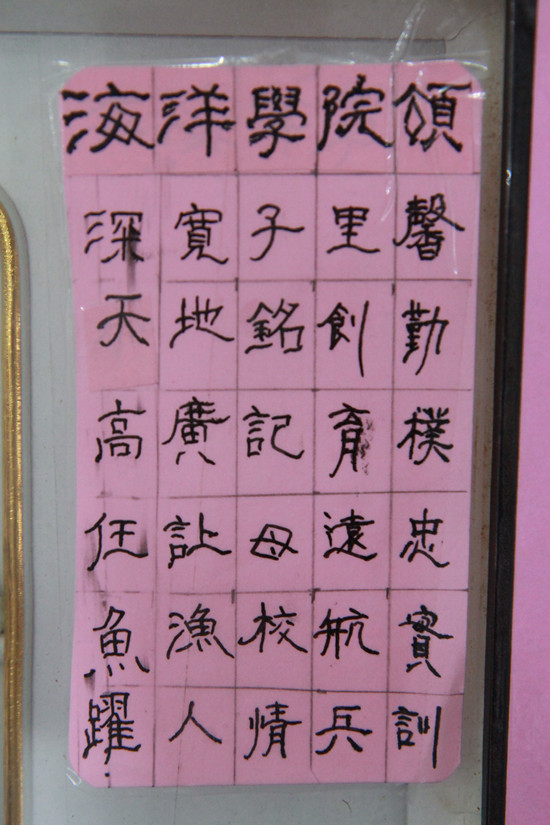 海深天高任魚躍
洋寬地廣让漁人
學子銘記母校情
院里創育遠航兵
頌馨勤樸忠實訓